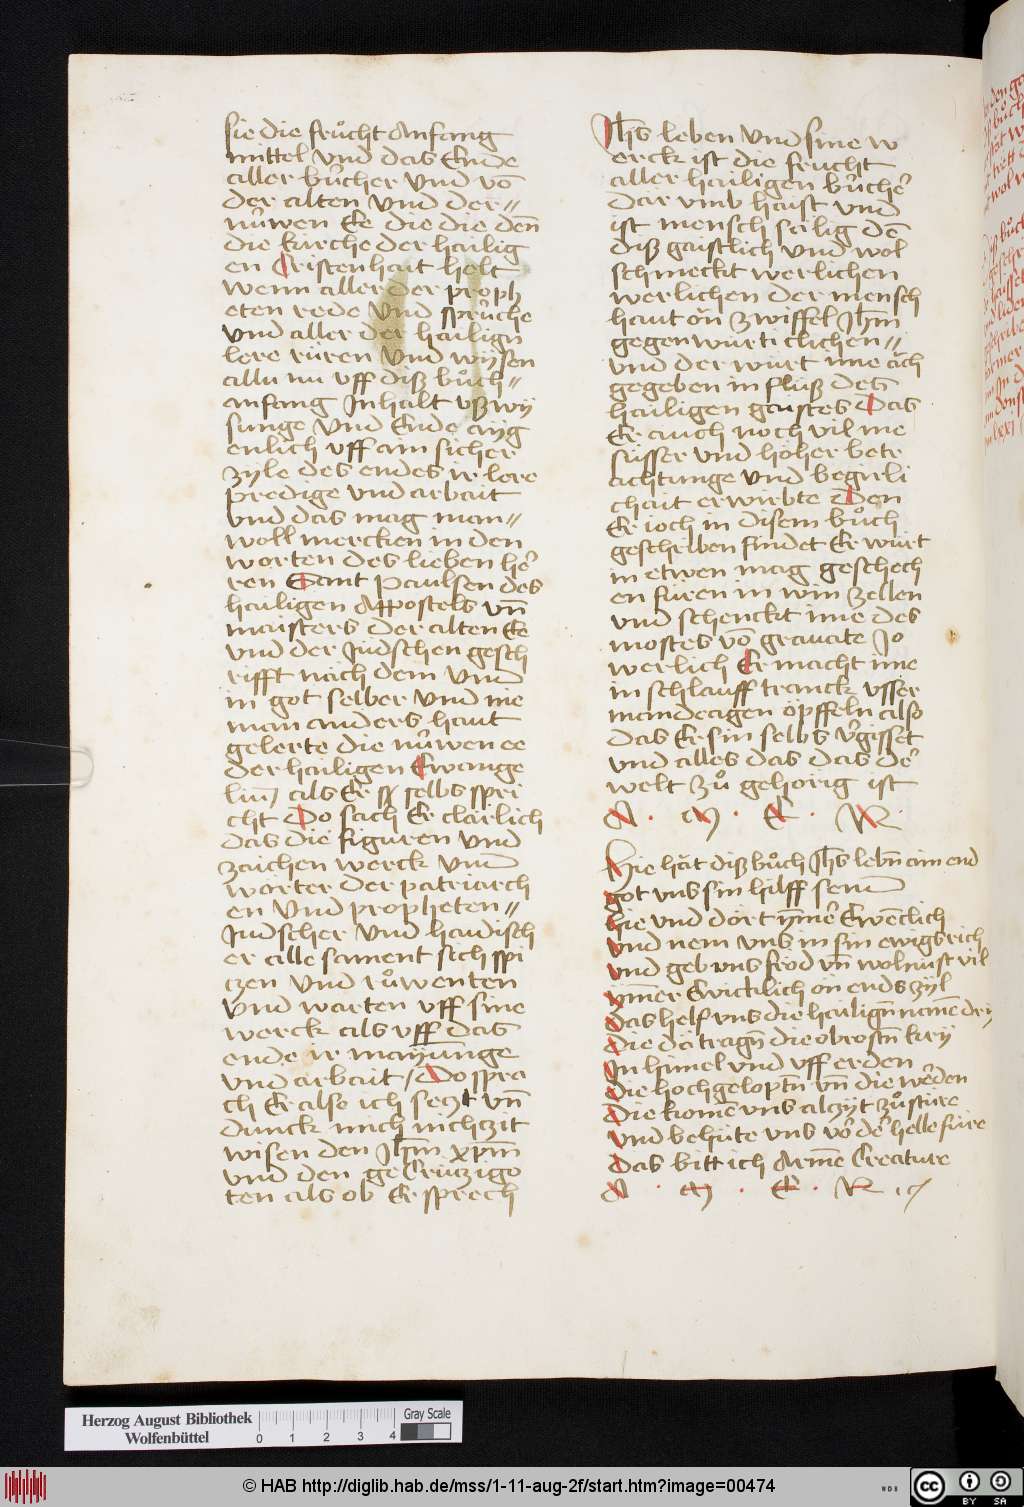 sie die frůcht Anfang
mittel vnd das Ende
aller bůcher vnd vō
der alten vnd der〃
nůwen Ee die die den̄
die kurche der hailig
en Cristenhait helt
wenn aller der proph
eten rede vnd sprůche
vnd aller der hailign
lere rüren vnd wÿsen
allu nu vff diß bůch〃
anfang Inhalt vßwÿ
sunge vnd Ende aÿg
enlich vff ain sicher
zyle des endes ir lere
predige vnd arbait
vnd das mag man〃
woll mercken in den
worten des lieben he᷑
ren Sant Paulsen des
hailigen Appostels vn̄
maisters der alten Ee
vnd der Judschen gesch
rifft nach dem vnd
in got selber vnd nie
man anders haut
gelerte die nůwen ee
der hailigen Ewange
liu᷑ als Er selbs spri
cht Do sach Er clarlich
das die figuren vnd
zaichen werck vnd
worter der patriarch
en vnd propheten〃
Judscher vnd haidisch
er alle sament sich spi
czen vnd růwenten
vnd warten vff sine
werck als vff das
ende ir maÿnunge
vnd arbait / Do spra
ch Er also ich seczt vn̄
dunck mich nichzit
wisen den Jhm̄ xpm̄
vnd den gecrüzigo
ten als ob Er sprech
Jhs leben vnd sine w
erck ist die frucht
aller hailigen bůche᷑
dar vmb haist vnd
ist mensch sälig dē
diß gaistlich vnd wol
schmeckt werlichen
werlichen der mensch
haut ön zwiffel Jhm̄
gegenwürticlichen〃
vnd der würt ime äch
gegeben in fluß des
hailigen gaistes Das
Er auch noch vil me
süsser vnd höher betr
achtunge vnd begirli
chait erwirbte Den
Er ioch in disem bůch
geschriben findet Er würt
in etwen mag geschech
en füren in win zellen
vnd schenckt ime des
mostes vō granate Jo
werlich Er macht ime
in schlauff tranck vsser
mandragen öpffeln also
das Er sin selbs v᷑gisset
vnd alles das das de᷑
welt zů gehörig ist
A · M · E · N ·
Hie hät diß bůch Jhs lebn̄ ain end
got vns sin hilff send
hie vnd dort ym̄e᷑ Ewēclich
vnd nem vns in sin ewigs rich
vnd geb vns fröd vn̄ wolnust vil
ym̄er Ewicklich ön ends zyl
das helf vns die hailign̄ namē drÿ
die da tragn̄ die obrostn̄ krÿ
In himel vnd vff erden
die hochgeloptn̄ vn̄ die we᷑den
die komē vns alczÿt zů stüre
vnd behüte vns vo᷑ de᷑ helle füre
das bitt ich Armē Creature
A · M · E · N ·
Herzog August Bibliothek
Wolfenbüttel
0 1 2 3 4
Gray Scale
© HAB http://diglib.hab.de/mss/1-11-aug-2f/start.htm?image=00474
WDB
cc BY SA